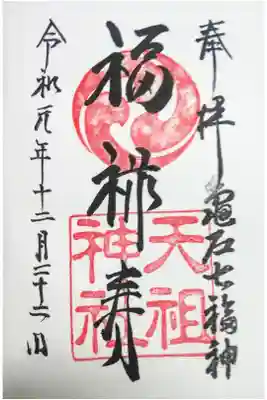 奉拝 龜戸七福神
福禄寿
天祖
神社
令和元年十二月二十二日